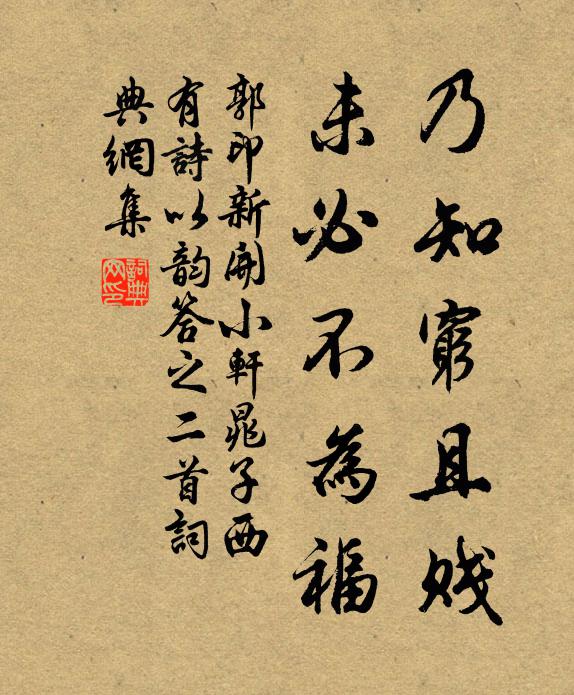 乃知窮且賤
未必不為福
郭印新開小軒晁子西
有詩以韵答之二首詞
典網集
詞典
网印